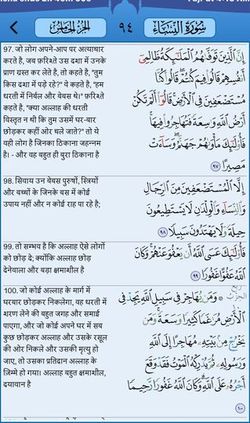 سُورَةُ النِّسَاءِ
٩٤
الجزء الخامس
97. जो लोग अपने-आप पर अत्याचार
करते है, जब फ़रिश्ते उस दशा में उनके
प्राण ग्रस्त कर लेते है, तो कहते है, "तुम
किस दशा में पड़े रहे?" वे कहते है, "हम
धरती में निर्बल और बेबस थे।" फ़रिश्ते
कहते है, "क्या अल्लाह की धरती
विस्तृत न थी कि तुम उसमें घर-बार
छोड़कर कहीं ओर चले जाते?" तो ये
वही लोग है जिनका ठिकाना जहन्नम
है। - और वह बहुत ही बुरा ठिकाना है
إِنَّ ٱلَّذِينَ تَوَفَّىٰهُمُ ٱلْمَلَٰٓئِكَةُ ظَالِمِىٓ
أَنفُسِهِمْ قَالُوا۟ فِيمَ كُنتُمْ قَالُوا۟ كُنَّا
مُسْتَضْعَفِينَ فِى ٱلْأَرْضِ قَالُوٓا۟ أَلَمْ تَكُنْ
أَرْضُ ٱللَّهِ وَٰسِعَةً فَتُهَاجِرُوا۟ فِيهَا
فَأُو۟لَٰٓئِكَ مَأْوَىٰهُمْ جَهَنَّمُ وَسَآءَتْ
مَصِيرًا ٩٧
98. सिवाय उन बेबस पुरुषों, स्त्रियों
और बच्चों के जिनके बस में कोई
उपाय नहीं और न कोई राह पा रहे है;
إِلَّا ٱلْمُسْتَضْعَفِينَ مِنَ ٱلرِّجَالِ
وَٱلنِّسَآءِ وَٱلْوِلْدَٰنِ لَا يَسْتَطِيعُونَ
حِيلَةً وَلَا يَهْتَدُونَ سَبِيلًا ٩٨
99. तो सम्भव है कि अल्लाह ऐसे लोगों
को छोड़ दे; क्योंकि अल्लाह छोड़
देनेवाला और बड़ा क्षमाशील है
فَأُو۟لَٰٓئِكَ عَسَى ٱللَّهُ أَن يَعْفُوَ عَنْهُمْ وَكَانَ
ٱللَّهُ عَفُوًّا غَفُورًا ٩٩
100. जो कोई अल्लाह के मार्ग में
घरबार छोड़कर निकलेगा, वह धरती में
शरण लेने की बहुत जगह और समाई
पाएगा, और जो कोई अपने घर में सब
कुछ छोड़कर अल्लाह और उसके रसूल
की ओर निकले और उसकी मृत्यु हो
जाए, तो उसका प्रतिदान अल्लाह के
जिम्मे हो गया। अल्लाह बहुत क्षमाशील,
दयावान है
وَمَن يُهَاجِرْ فِى سَبِيلِ ٱللَّهِ يَجِدْ فِى
ٱلْأَرْضِ مُرَٰغَمًا كَثِيرًا وَسَعَةً وَمَن
يَخْرُجْ مِنۢ بَيْتِهِۦ مُهَاجِرًا إِلَى ٱللَّهِ
وَرَسُولِهِۦ ثُمَّ يُدْرِكْهُ ٱلْمَوْتُ فَقَدْ وَقَعَ
أَجْرُهُۥ عَلَى ٱللَّهِ وَكَانَ ٱللَّهُ غَفُورًا رَّحِيمًا
١٠٠